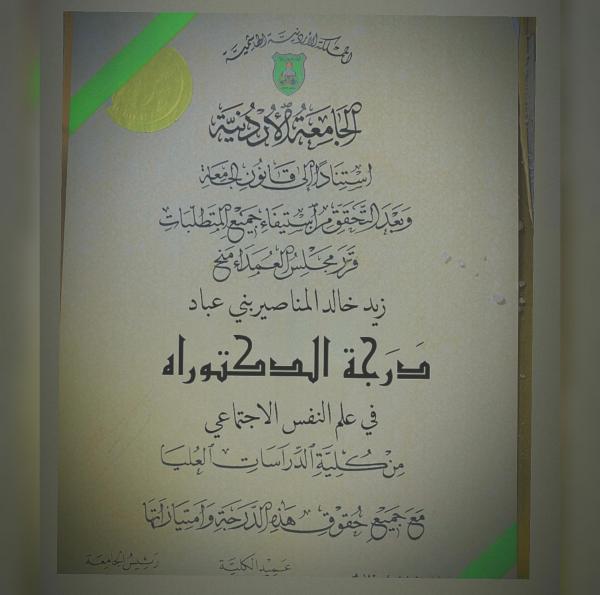 المملكة الأردنية الهاشمية
الجامعة الأردنية
استنادًا إلى قانون الجامعة
وبعد التحقق من استيفاء جميع المتطلبات
قرر مجلس العمداء منح
زيد خالد المناصير بني عباد
درجة الدكتوراه
في علم النفس الاجتماعي
من كلية الدراسات العليا
مع جميع حقوق هذه الدرجة وامتيازاتها
عميد الكلية
رئيس الجامعة